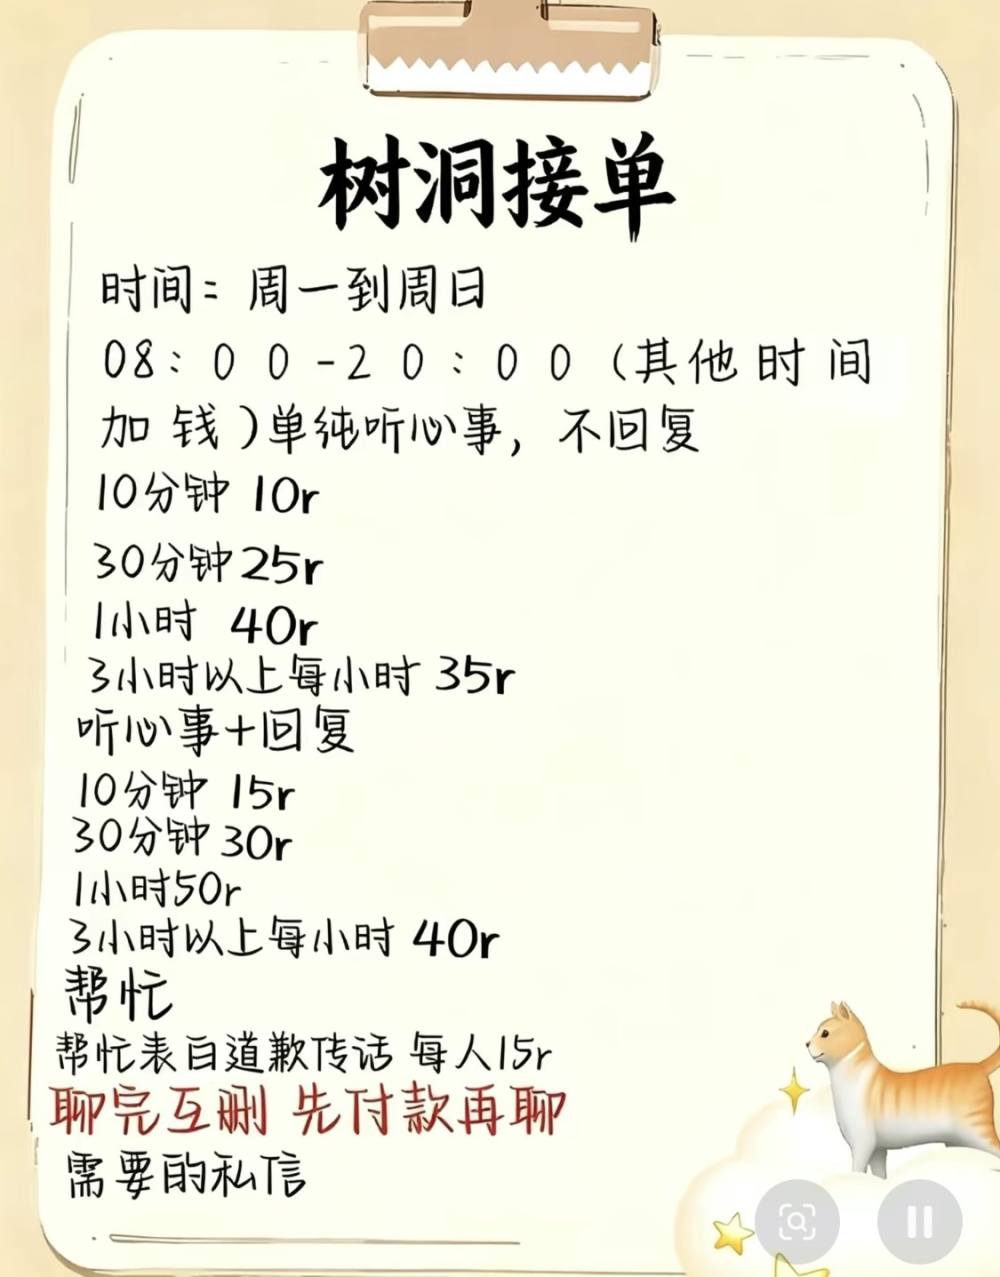 树洞接单
时间：周一到周日
08：00-20：00（其他时间
加钱）单纯听心事，不回复
10分钟 10r
30分钟25r
1小时 40r
3小时以上每小时 35r
听心事+回复
10分钟 15r
30分钟 30r
1小时50r
3小时以上每小时 40r
帮忙
帮忙表白道歉传话 每人15r
聊完互删 先付款再聊
需要的私信